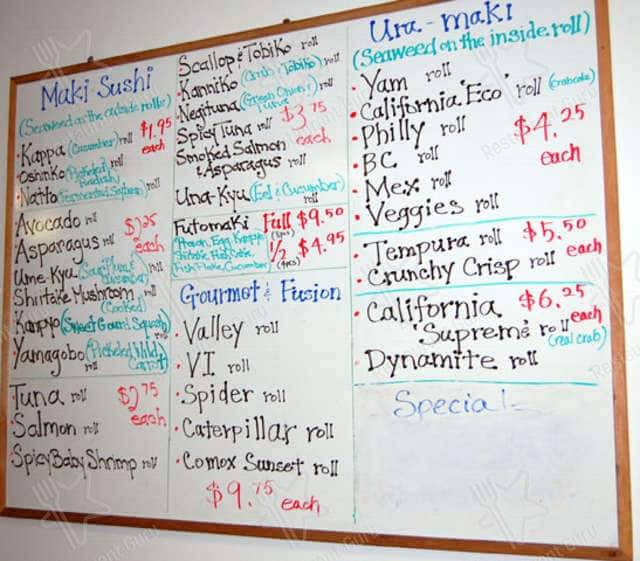 Maki Sushi
(Seaweed on the outside rolls)
• Kappa (Cucumber) roll $1.95
Oshinko (Pickeled Radish) roll each
• Natto (Fermented Soybean) roll
Avocado roll $2.25
Asparagus roll each
Ume Kyu (Sour Plum & Cucumber) roll
Shiitake Mushroom roll
(Cooked)
Kanpyo (Sweet Gourd Squash) roll
Yamagobo (Pickeled Wild Carrot) roll
Tuna roll $2.75
Salmon roll each
Spicy Baby Shrimp roll
Scallop & Tobiko roll
• Kanniko (Crab & Tobiko) roll
• Negituna (Green Onion & Tuna) roll
Spicy Tuna roll $3.75
Smoked Salmon each
& Asparagus roll
Una-Kyu (Eel & Cucumber)
roll
Futomaki Full $9.50
(8pcs)
1/2 $4.95
(4pcs)
Gourmet & Fusion
• Valley roll
• VI roll
• Spider roll
• Caterpillar roll
• Comox Sunset roll
$9.75 each
Ura-maki
(Seaweed on the inside roll)
• Yam roll
• California 'Eco' roll (crabcake)
• Philly roll $4.25
• BC roll each
• Mex roll
• Veggies roll
• Tempura roll $5.50
• Crunchy Crisp roll each
• California $6.25
'Supreme' roll each
(real crab)
Dynamite roll
Special